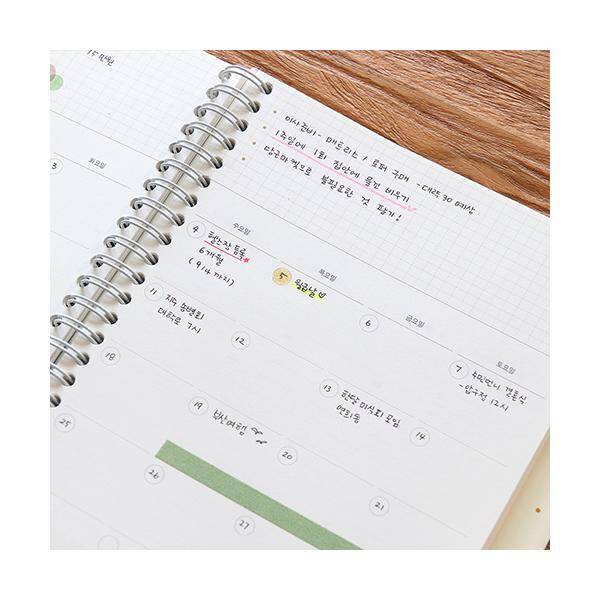 15만원
이사준비 - 매트리스 / 토퍼 구매 - 대략 30 예상
1주일에 1회 집안에 물건 비우기
당근마켓으로 불필요한 것 팔기!
화요일
수요일
목요일
금요일
토요일
3
4 헬스장 등록
6개월
(9/4 까지)
5 월급날
6
7 수민언니 결혼식
- 압구정 12시
11 지수 송별회
대학로 7시
12
13 한달 미식회 모임
연희동
14
18
19 부산여행
20
21
25
26
27